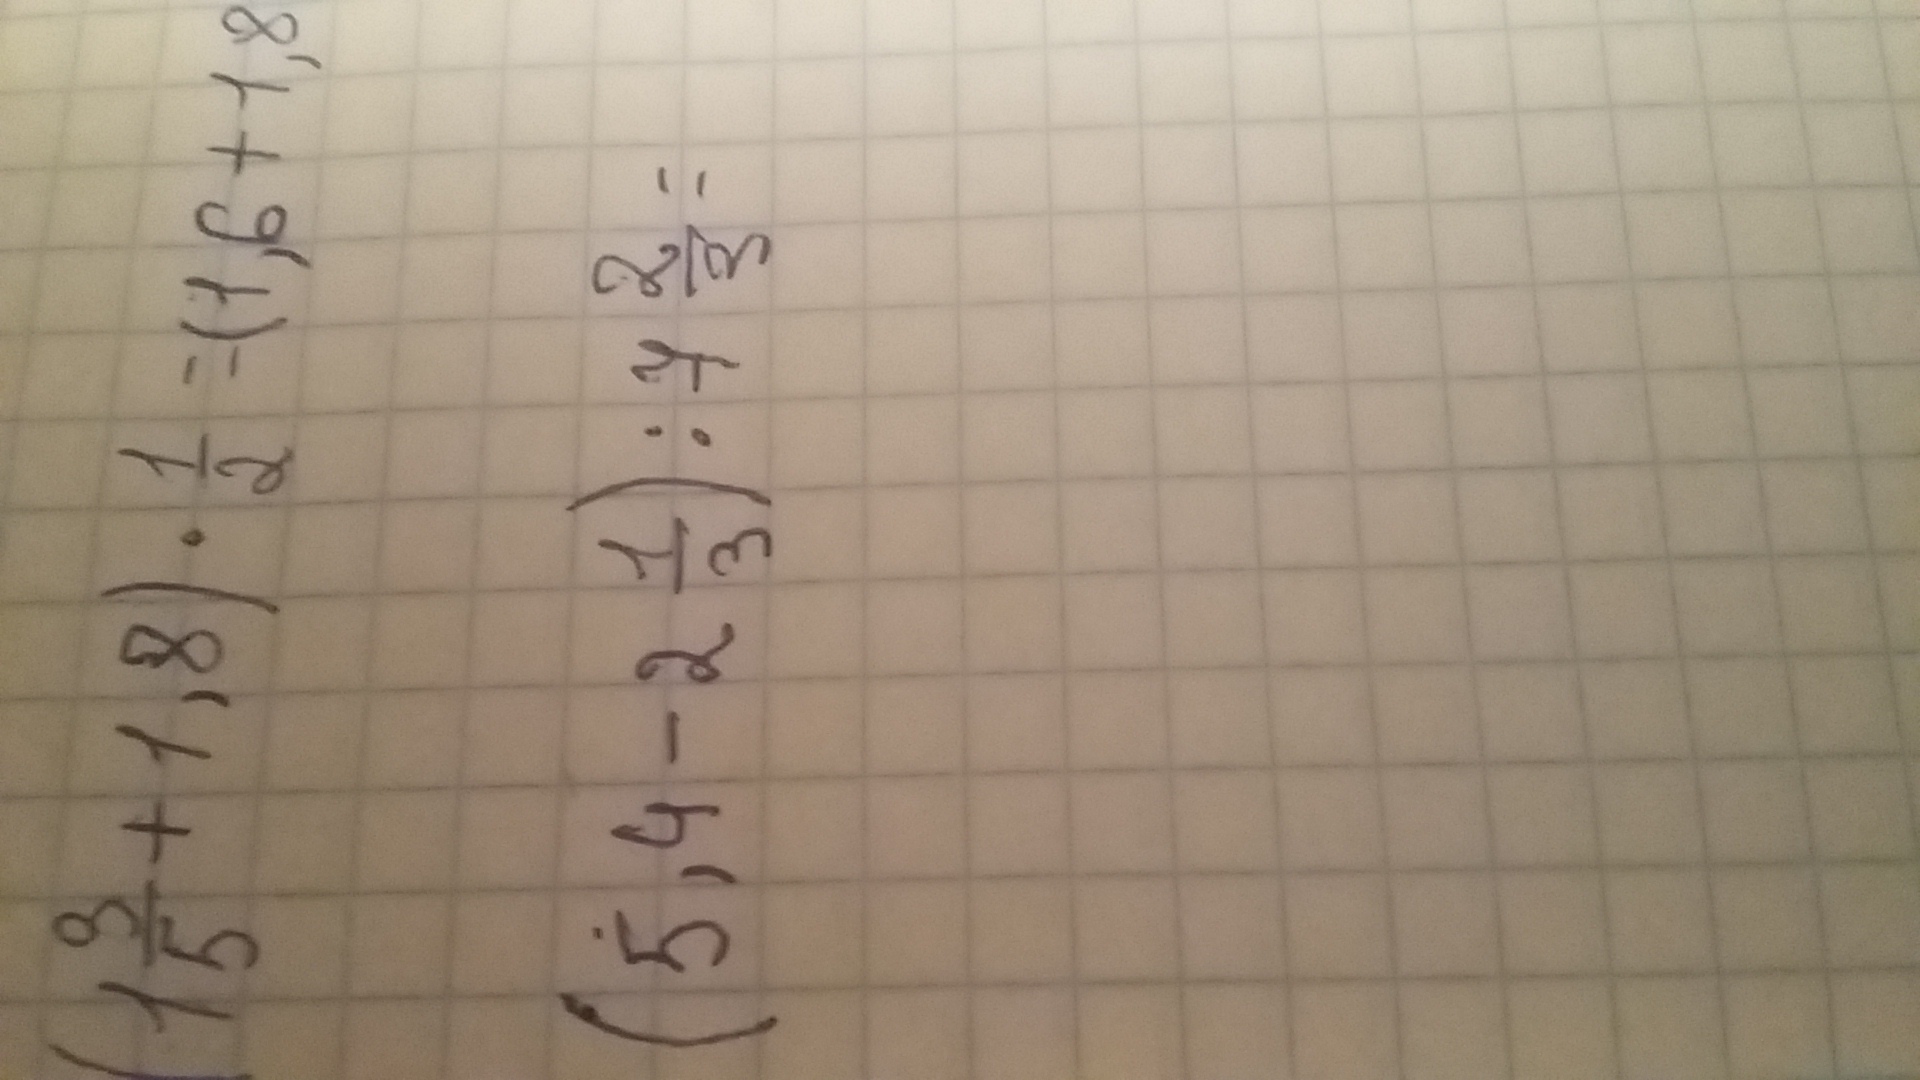 (1 3/5 + 1,8) · 1/2 = (1,6 + 1,8
(5,4 - 2 1/3) : 7 2/3 =